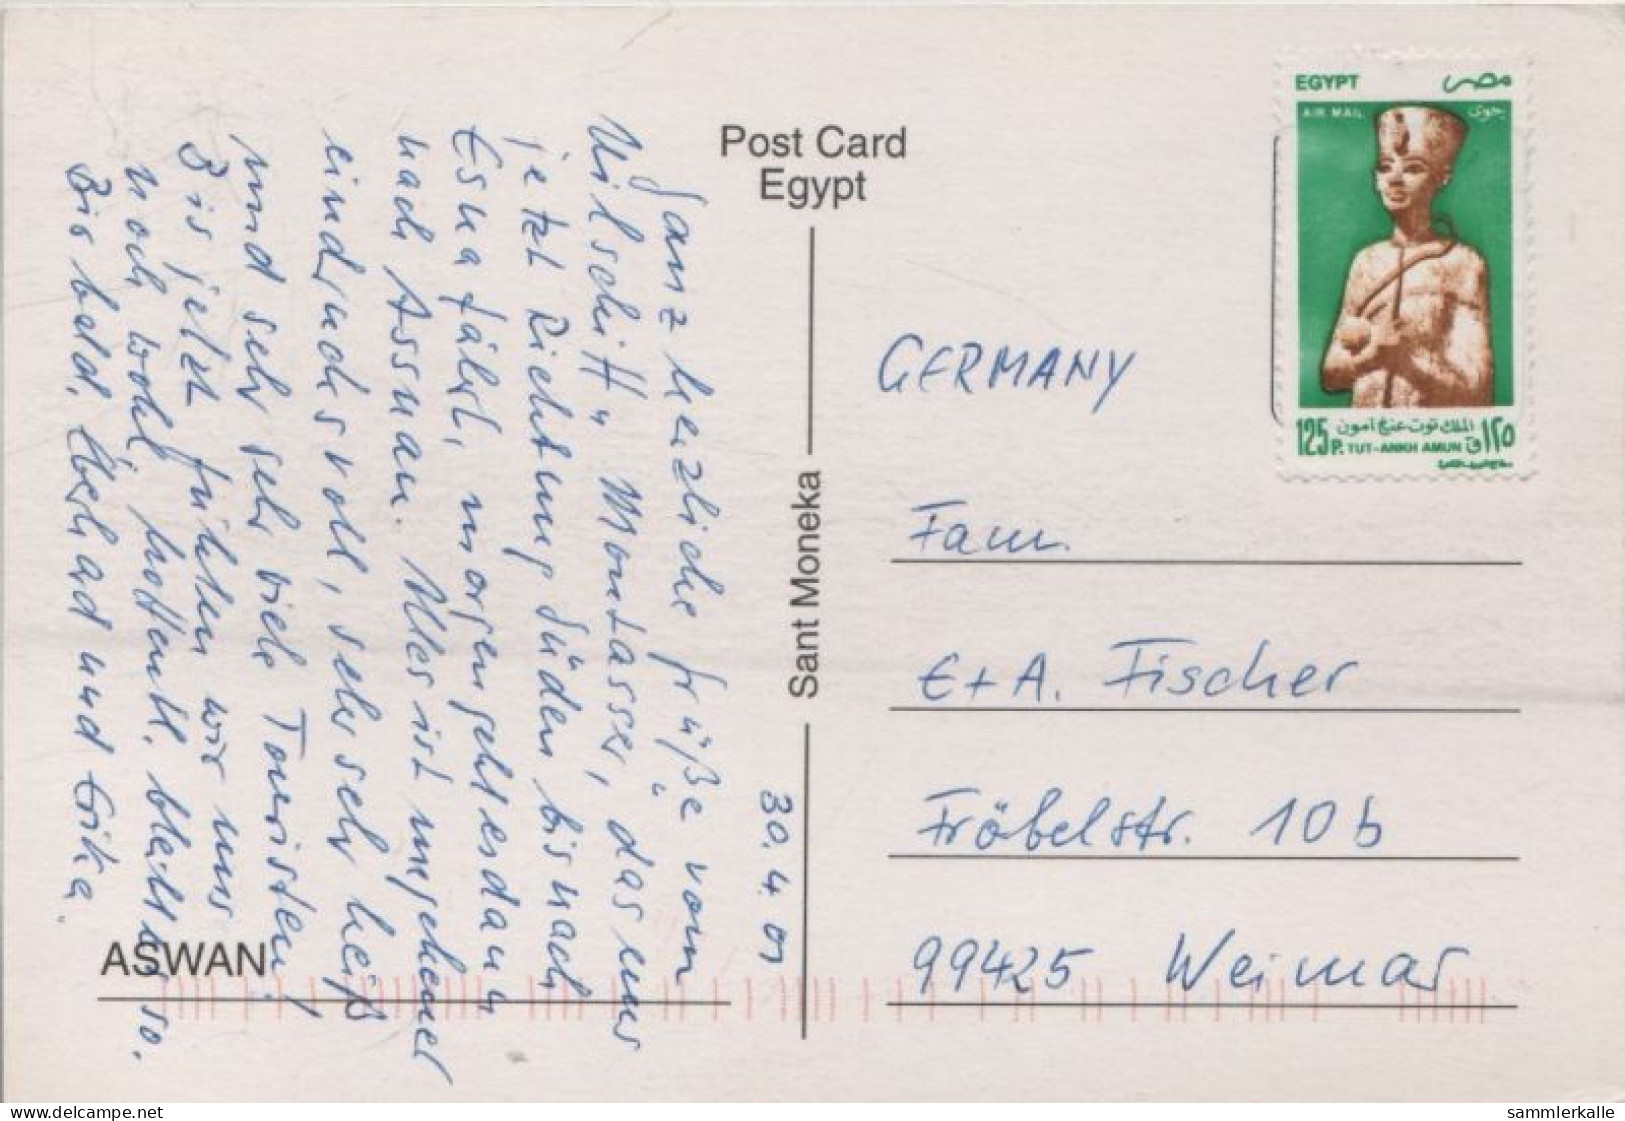 Post Card
Egypt
EGYPT مصر
AIR MAIL بريد جوى
125P. TUT-ANKH AMUN ١٢٥ق
الملك توت عنخ آمون
Sant Moneka
ASWAN
30.4.01
Ganz herzliche Grüße vom
Nilschiff „Montasser“, das uns
jetzt Richtung Süden bis nach
Esna fährt, morgen geht es dann
nach Assuan. Alles ist ungeheuer
eindrucksvoll, sehr sehr heiß
und sehr sehr viele Touristen,
Bis jetzt fühlen wir uns
noch wohl, hoffentl. bleibt es so.
Bis bald, Eberhard und Erika
GERMANY
Fam.
E+A. Fischer
Fröbelstr. 10b
99425 Weimar
www.delcampe.net
sammlerkalle